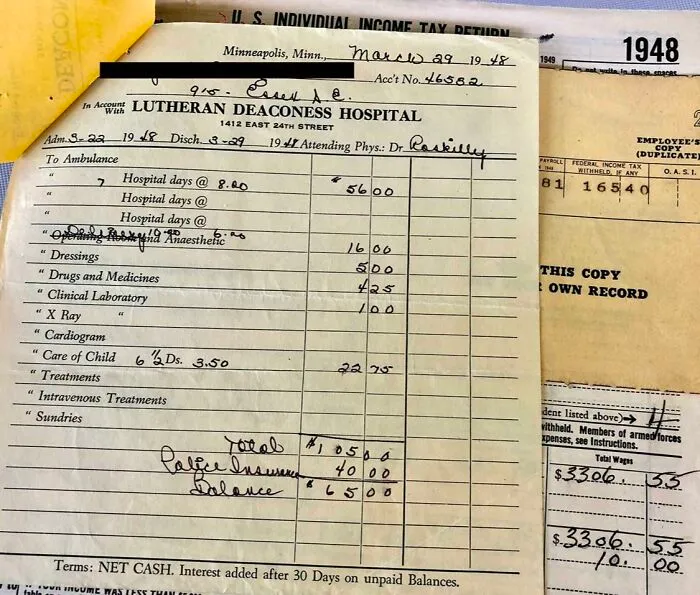 DEACON
U. S. INDIVIDUAL INCOME TAX RETURN
1949
1948
Do not write in these spaces
Minneapolis, Minn., March 29 1948
Acc't No. 46582
915- Essex S.E.
In Account With LUTHERAN DEACONESS HOSPITAL
1412 EAST 24TH STREET
Adm. 3-22 1948 Disch. 3-29 1948 Attending Phys.: Dr. Roskilly
To Ambulance
" 7 Hospital days @ 8.00 $ 56 00
" Hospital days @
" Hospital days @
Delivery 10.00 6.00
" Operating Room and Anaesthetic 16 00
" Dressings 5 00
" Drugs and Medicines 4 25
" Clinical Laboratory 1 00
" X Ray "
" Cardiogram
" Care of Child 6 ½ Ds. 3.50 22 75
" Treatments
" Intravenous Treatments
" Sundries
Total $ 105 00
Police Insurance 40 00
Balance $ 65 00
Terms: NET CASH. Interest added after 30 Days on unpaid Balances.
EMPLOYEE'S
COPY
(DUPLICATE
PAYROLL
FEDERAL INCOME TAX
WITHHELD, IF ANY
O. A. S. I.
81 165 40
THIS COPY
OWN RECORD
dent listed above) → 4
withheld. Members of armed forces
xpenses, see Instructions.
Total Wages
$ 3306. 55
$ 3306. 55
10. 00
YOUR INCOME WAS LESS THAN